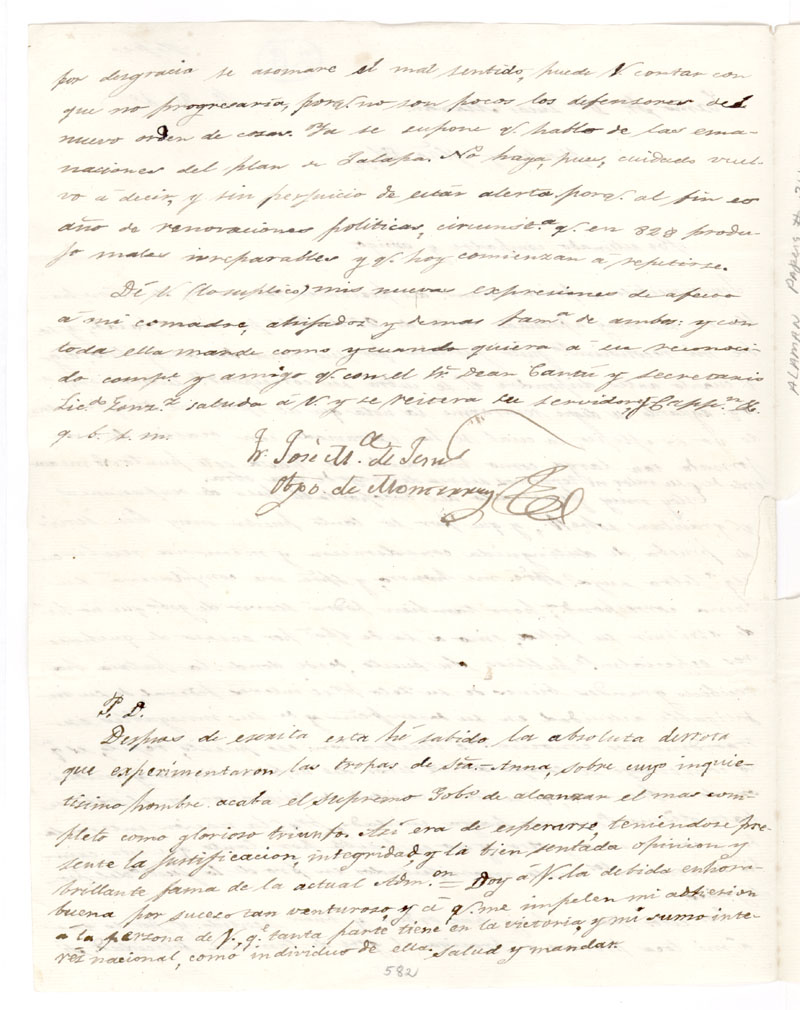 por desgracia se asomare el mal sentido, puede V. contar con
que no progresaría, porq. no son pocos los defensores del
nuevo orden de cosas. Ya se supone q. hablo de las ema-
naciones del plan de Jalapa. No haya, pues, cuidado vuel-
vo á decir, y sin perjuicio de estár alerta porq. al fin es
año de renovaciones politicas, circunst.a q. en 828 produ-
jo males irreparables y q. hoy comienzan á repetirse.
Dé V. (lo suplico) mis nuevas expresiones de afecto
á mi comadre, ahijados y demas fam.a de ambos: y con
toda ella mande como y cuando quiera á su reconoci-
do comp.e y amigo q. con el Sr. Dean Cantu y secretario
Lic.do Gonz.z saluda á V. y se reitera su servidor, y Capp.n
q. b. s. m.
Fr. José M.a de Jesus
Obpo. de Monterrey
P. D.
Despues de escrita esta hé sabido la absoluta derrota
que experimentaron las tropas de Sta.-Anna, sobre cuyo inquie-
tisimo hombre acaba el supremo Gob.o de alcanzar el mas com-
pleto como glorioso triunfo. Así era de esperarse, teniendose pre-
sente la justificacion, integridad, y la bien sentada opinion y
brillante fama de la actual Adm.on = Doy á V. la debida enhora-
buena por suceso tan venturoso, y á q. me impelen mi adhesion
á la persona de V., q.e tanta parte tiene en la victoria, y mi sumo inte-
rés nacional, como individuo de ella. Salud y mandar.
582
ALAMAN PAPERS #